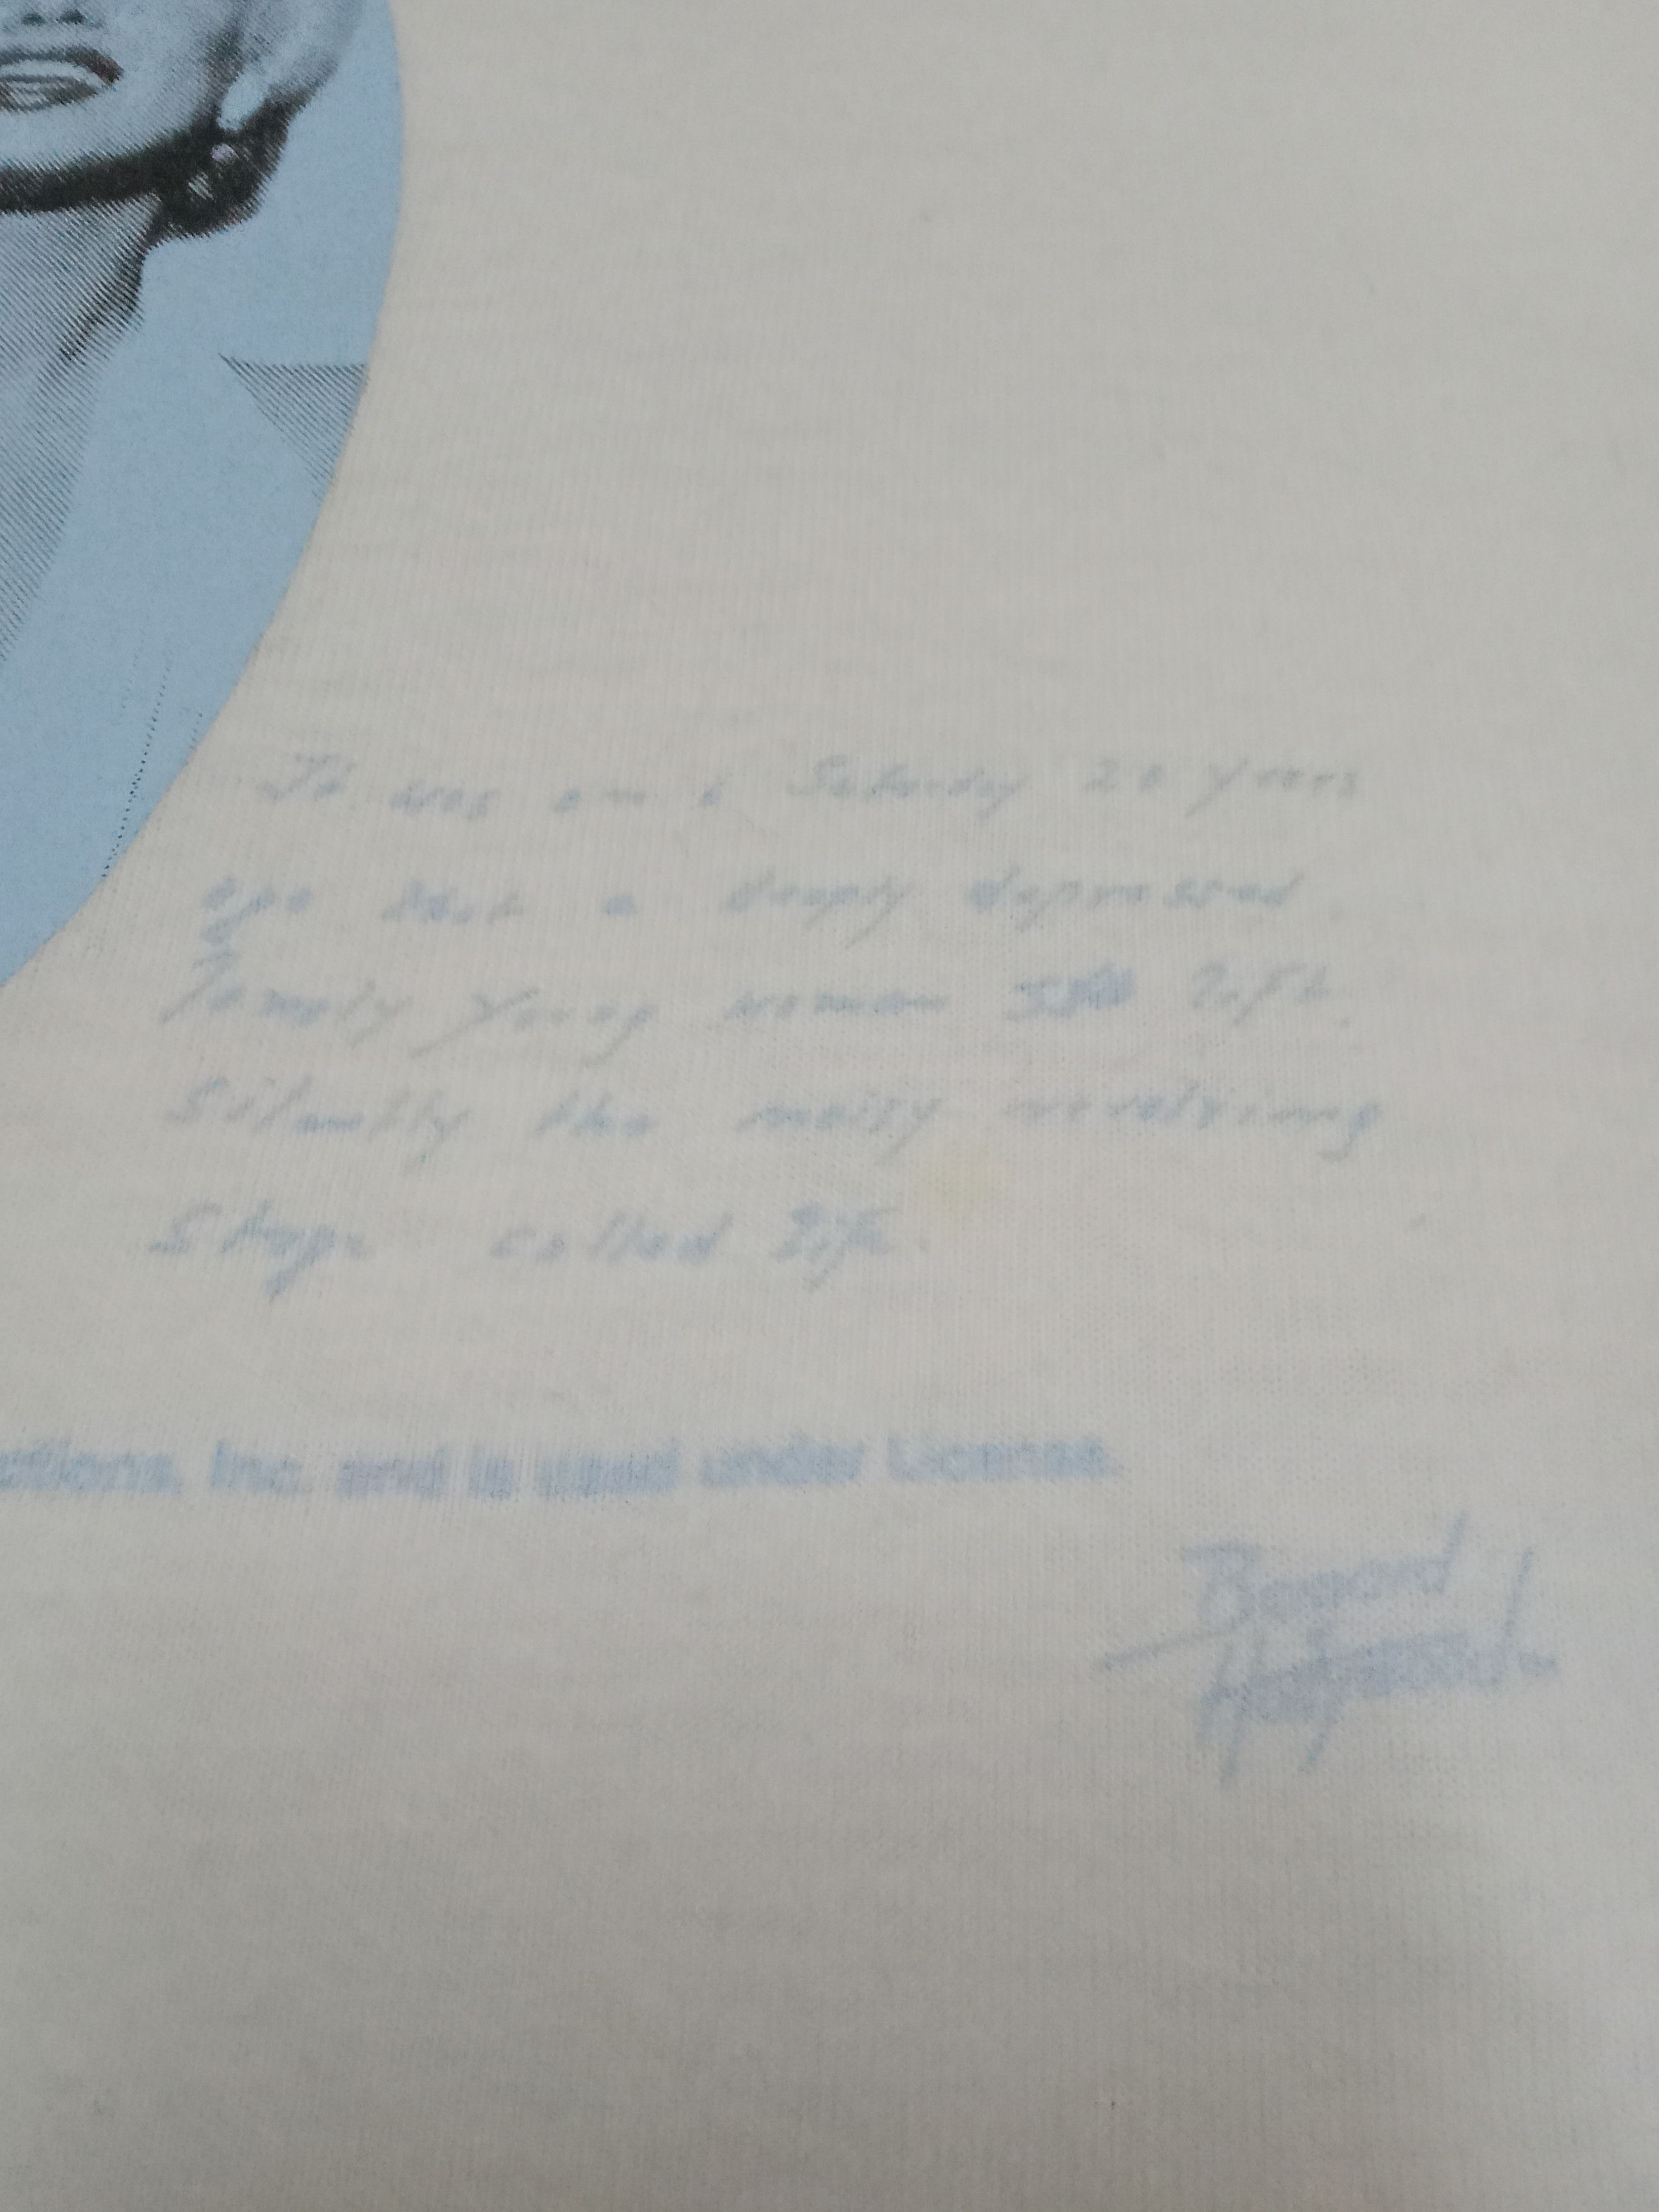 It was on a Saturday 20 years
ago that a deeply depressed
lonely young woman left
silently the noisy revolving
stage called life.
ctions, Inc. and is used under License.
Bernard
Hollywood